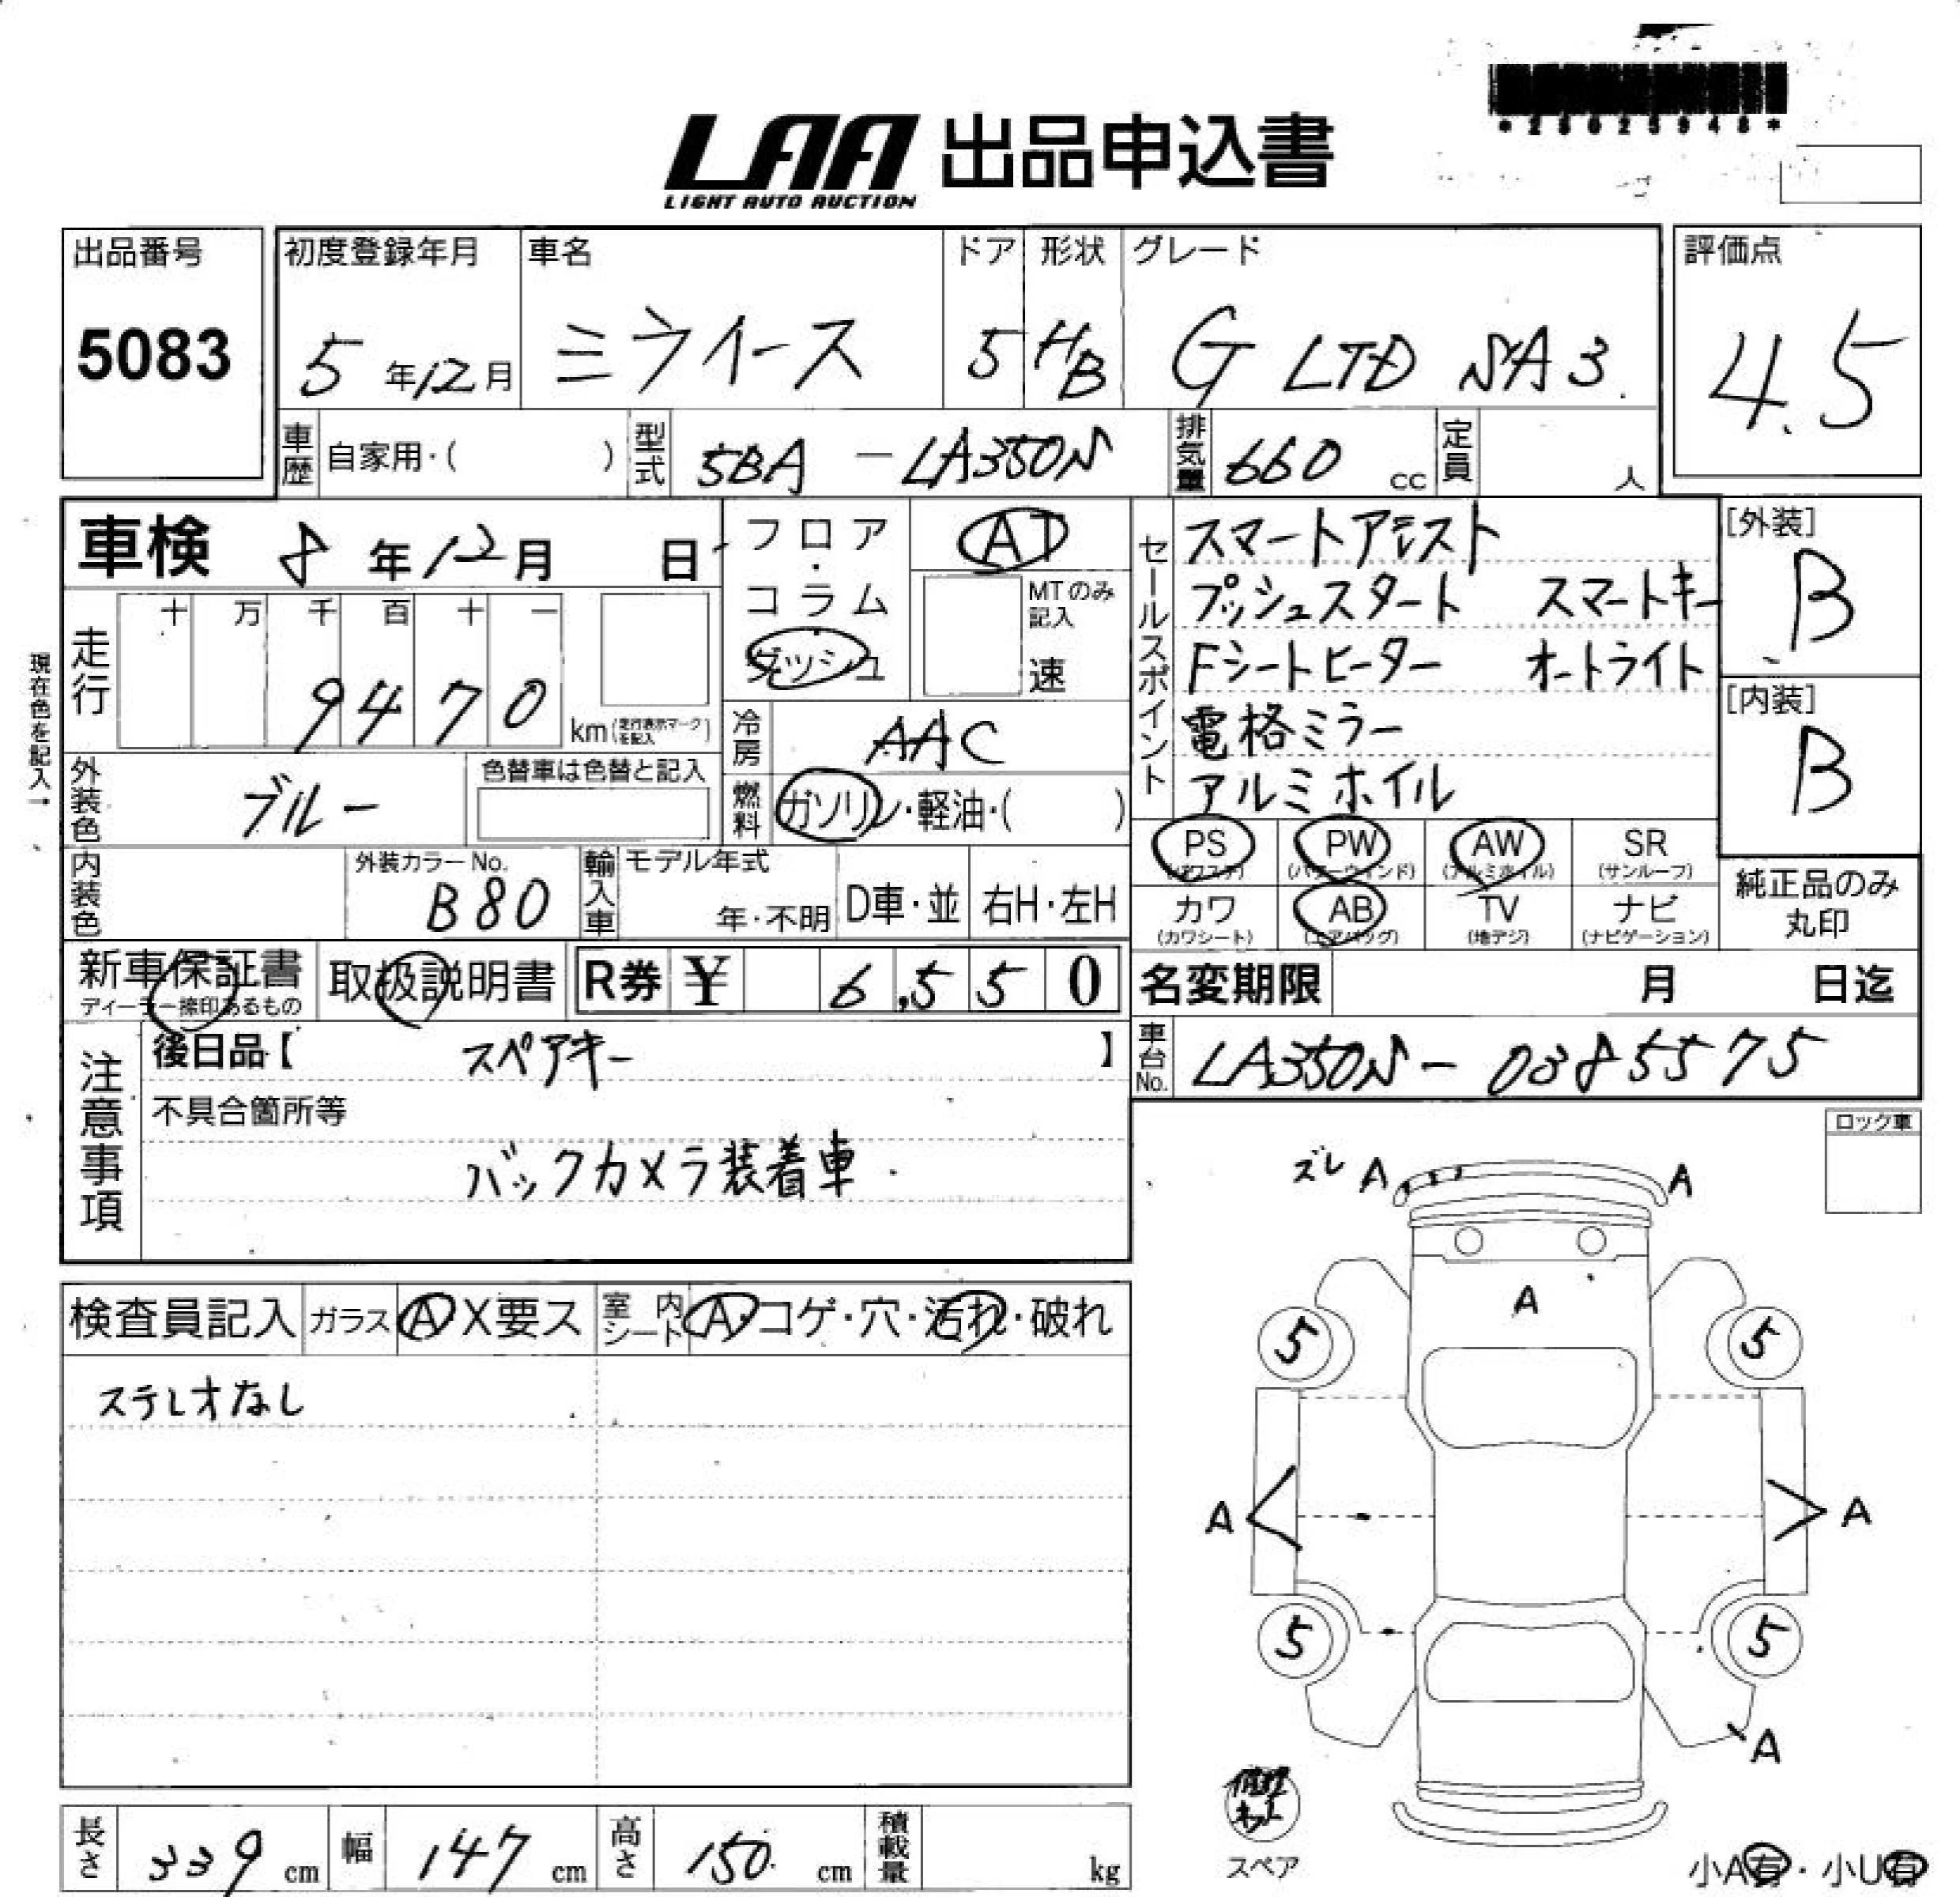 *23025948*
LAA 出品申込書
LIGHT AUTO AUCTION
出品番号
5083
初度登録年月
5年12月
車名
ミライース
ドア
5
形状
HB
グレード
G LTD SA3
評価点
4.5
車歴
自家用・( )
型式
5BA-LA350S
排気量
660 cc
定員
人
車検 8年12月 日
フロア・コラム
ダッシュ
AT
MTのみ記入
速
現在色を記入→
走行
十 万 千 百 十 一
9470
km(走行表示マークを記入)
冷房
AAC
燃料
ガソリン・軽油・( )
外装色
ブルー
色替車は色替と記入
内装色
外装カラーNo.
B80
輸入車
モデル年式
年・不明
D車・並
右H・左H
セールスポイント
スマートアシスト
プッシュスタート スマートキー
Fシートヒーター オートライト
電格ミラー
アルミホイル
[外装]
B
[内装]
B
PS (パワステ)
PW (パワーウィンド)
AW (アルミホイル)
SR (サンルーフ)
カワ (カワシート)
AB (エアバッグ)
TV (地デジ)
ナビ (ナビゲーション)
純正品のみ丸印
新車保証書
ディーラー捺印あるもの
取扱説明書
R券 ¥ 6,550
名変期限 月 日迄
車台No.
LA350S-0385575
注意事項
後日品【 スペアキー 】
不具合箇所等
バックカメラ装着車
ロック車
ズレ A A
A
5 5
A A
5 5
A
スペア
小A有・小U有
検査員記入
ガラス
A X要ス
室内シート
A・コゲ・穴・汚れ・破れ
ステレオなし
長さ
339 cm
幅
147 cm
高さ
150 cm
積載量
kg